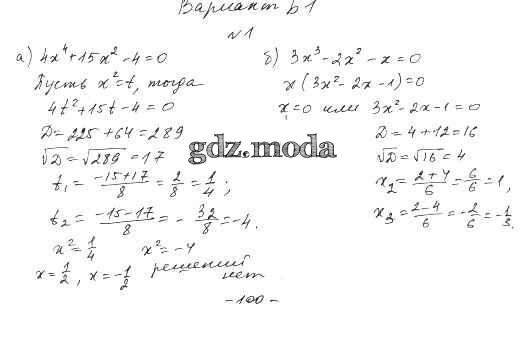 Вариант Б1
№1
а) 4x⁴+15x²-4=0
Пусть x²=t, тогда
4t²+15t-4=0
D=225+64=289
√D=√289=17
t₁=(-15+17)/8=2/8=1/4;
t₂=(-15-17)/8=-32/8=-4.
x²=1/4 x²=-4
x=1/2, x=-1/2 решений
нет
б) 3x³-2x²-x=0
x(3x²-2x-1)=0
x₁=0 или 3x²-2x-1=0
D=4+12=16
√D=√16=4
x₂=(2+4)/6=6/6=1,
x₃=(2-4)/6=-2/6=-1/3.
gdz.moda
-100-